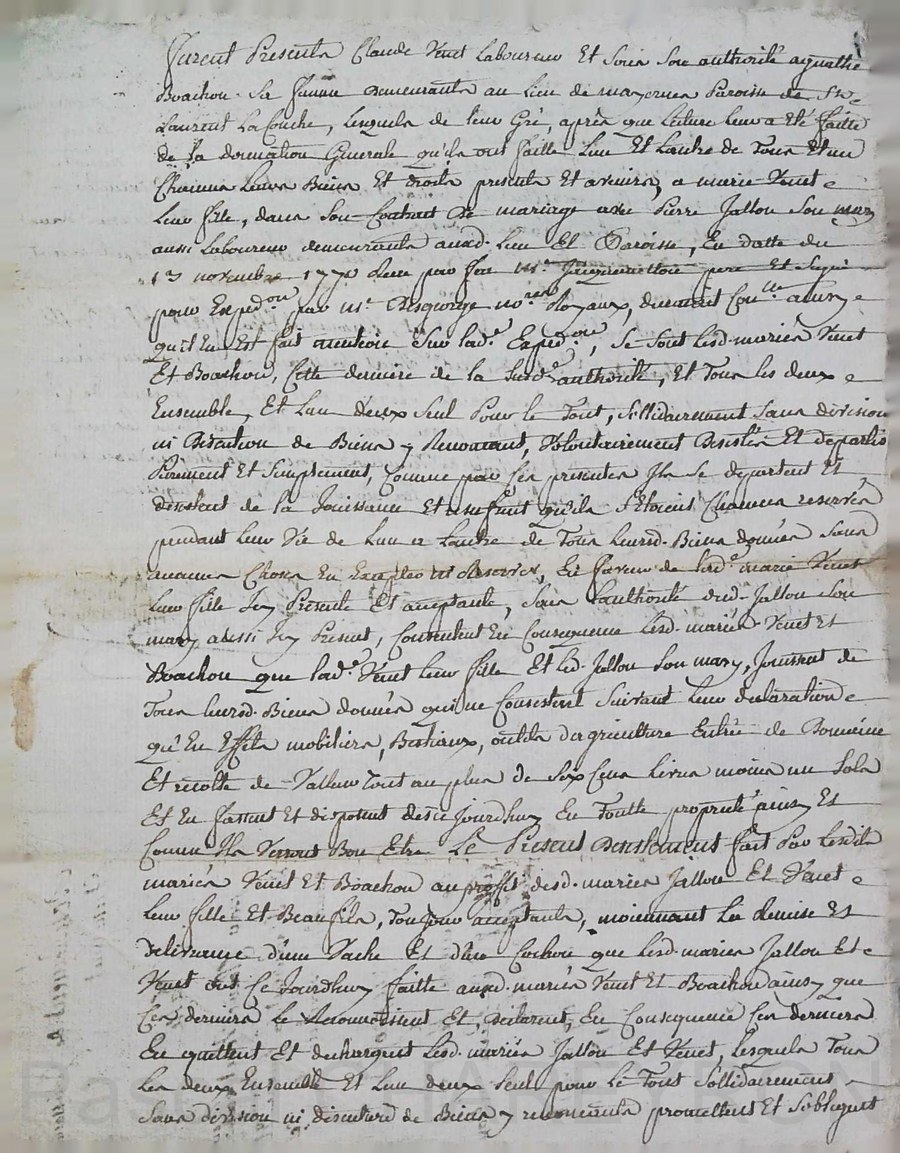 furent Presents Claude Venet Laboureur Et Sous Son authorité agathe
Boachon Sa femme Demeurants au Lieu de mayernes Paroisse de St
Laurent La Couche, Lesquels de leur Gré, après que Lecture leur a Eté faitte
de la donnation Generale qu'ils ont faitte L'un Et L'autre de Tous Et un
Chacuns Leurs Biens Et droits presents Et avenirs, a marie Venet
Leur fille, dans Son Contrat de mariage avec Pierre Jallon Son mary
aussi Laboureur demeurants aud. Lieu Et Paroisse, En datte du
13 novembre 177 Recu par feu Me pere Et Signé
pour Exped.on par Me Desgorge no.re Royaux, duement Con.lé ainsy
qu'il En Est fait mention Sur lad.e Exped.on, Se Sont Lesd. mariés Venet
Et Boachon, Cette derniere de la Susd.e authorité, Et Tous les deux
Ensemble, Et L'un d'eux Seul Pour le Tout, Sollidairement Sans division
ni Discution de Biens y Renonçant, Volontairement Desistés Et départis
Purement Et Simplement, Comme par Ces presentes Ils Se départent Et
désistent de la Jouissance Et usufruit qu'ils S'Etoient Chacuns reservés
pendant Leur Vie de L'un et L'autre de Tous Leursd. Biens donnés Sans
aucunes Choses En Excepter ni Reserver, En faveur de lad.e marie Venet
Leur fille Icy Presente Et acceptante, Sous L'authorité dud. Jallon Son
mary aussi Icy Present, Consentent En Consequence Lesd. mariés Venet Et
Boachon que lad.e Venet leur fille Et Led. Jallon Son mary, Jouissent de
Tous leursd. Biens donnés qui ne Consistent Suivant Leur declaration
qu'En Effets mobiliers, Bestiaux, outils d'agriculture Entrée de Domaine
Et recolte de Valleur Tout au plus de Six Cens Livres moins un Sols
Et En fassent Et disposent dès ce Jourdhuy En Toutte proprieté ainsy Et
Comme Ils Verront Bon Etre Le Present Desistement fait Par Lesdits
mariés Venet Et Boachon au proffit desd. mariés Jallon Et Venet
Leur fille Et Beaufils, Toujour acceptants, moiennant La remise Et
délivrance d'une Vache Et d'un Cochon que Lesd. mariés Jallon Et
Venet ont Ce Jourdhuy faitte auxd. mariés Venet Et Boachon ainsy que
Ces derniers Le Reconnoissent Et Déclarent, En Consequence Ces derniers
En quittent Et dechargent Lesd. mariés Jallon Et Venet, Lesquels Tous
Les deux Ensemble Et L'un deux Seul pour le Tout Sollidairement
Sans division ni discution de Biens y renonçants promettent Et S'obligent